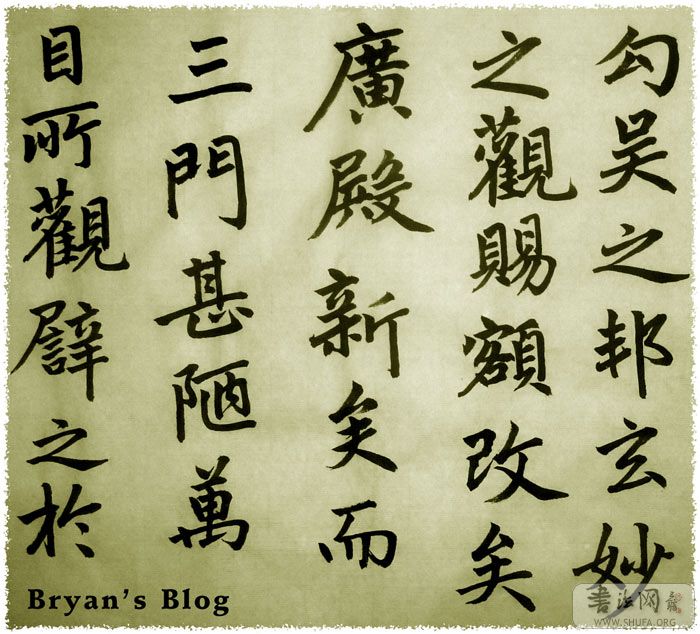 勾吴之邦玄妙
之觀賜額改矣
廣殿新矣而
三門甚陋萬
目所觀譬之於
Bryan's Blog
書法网
WWW.SHUFA.ORG